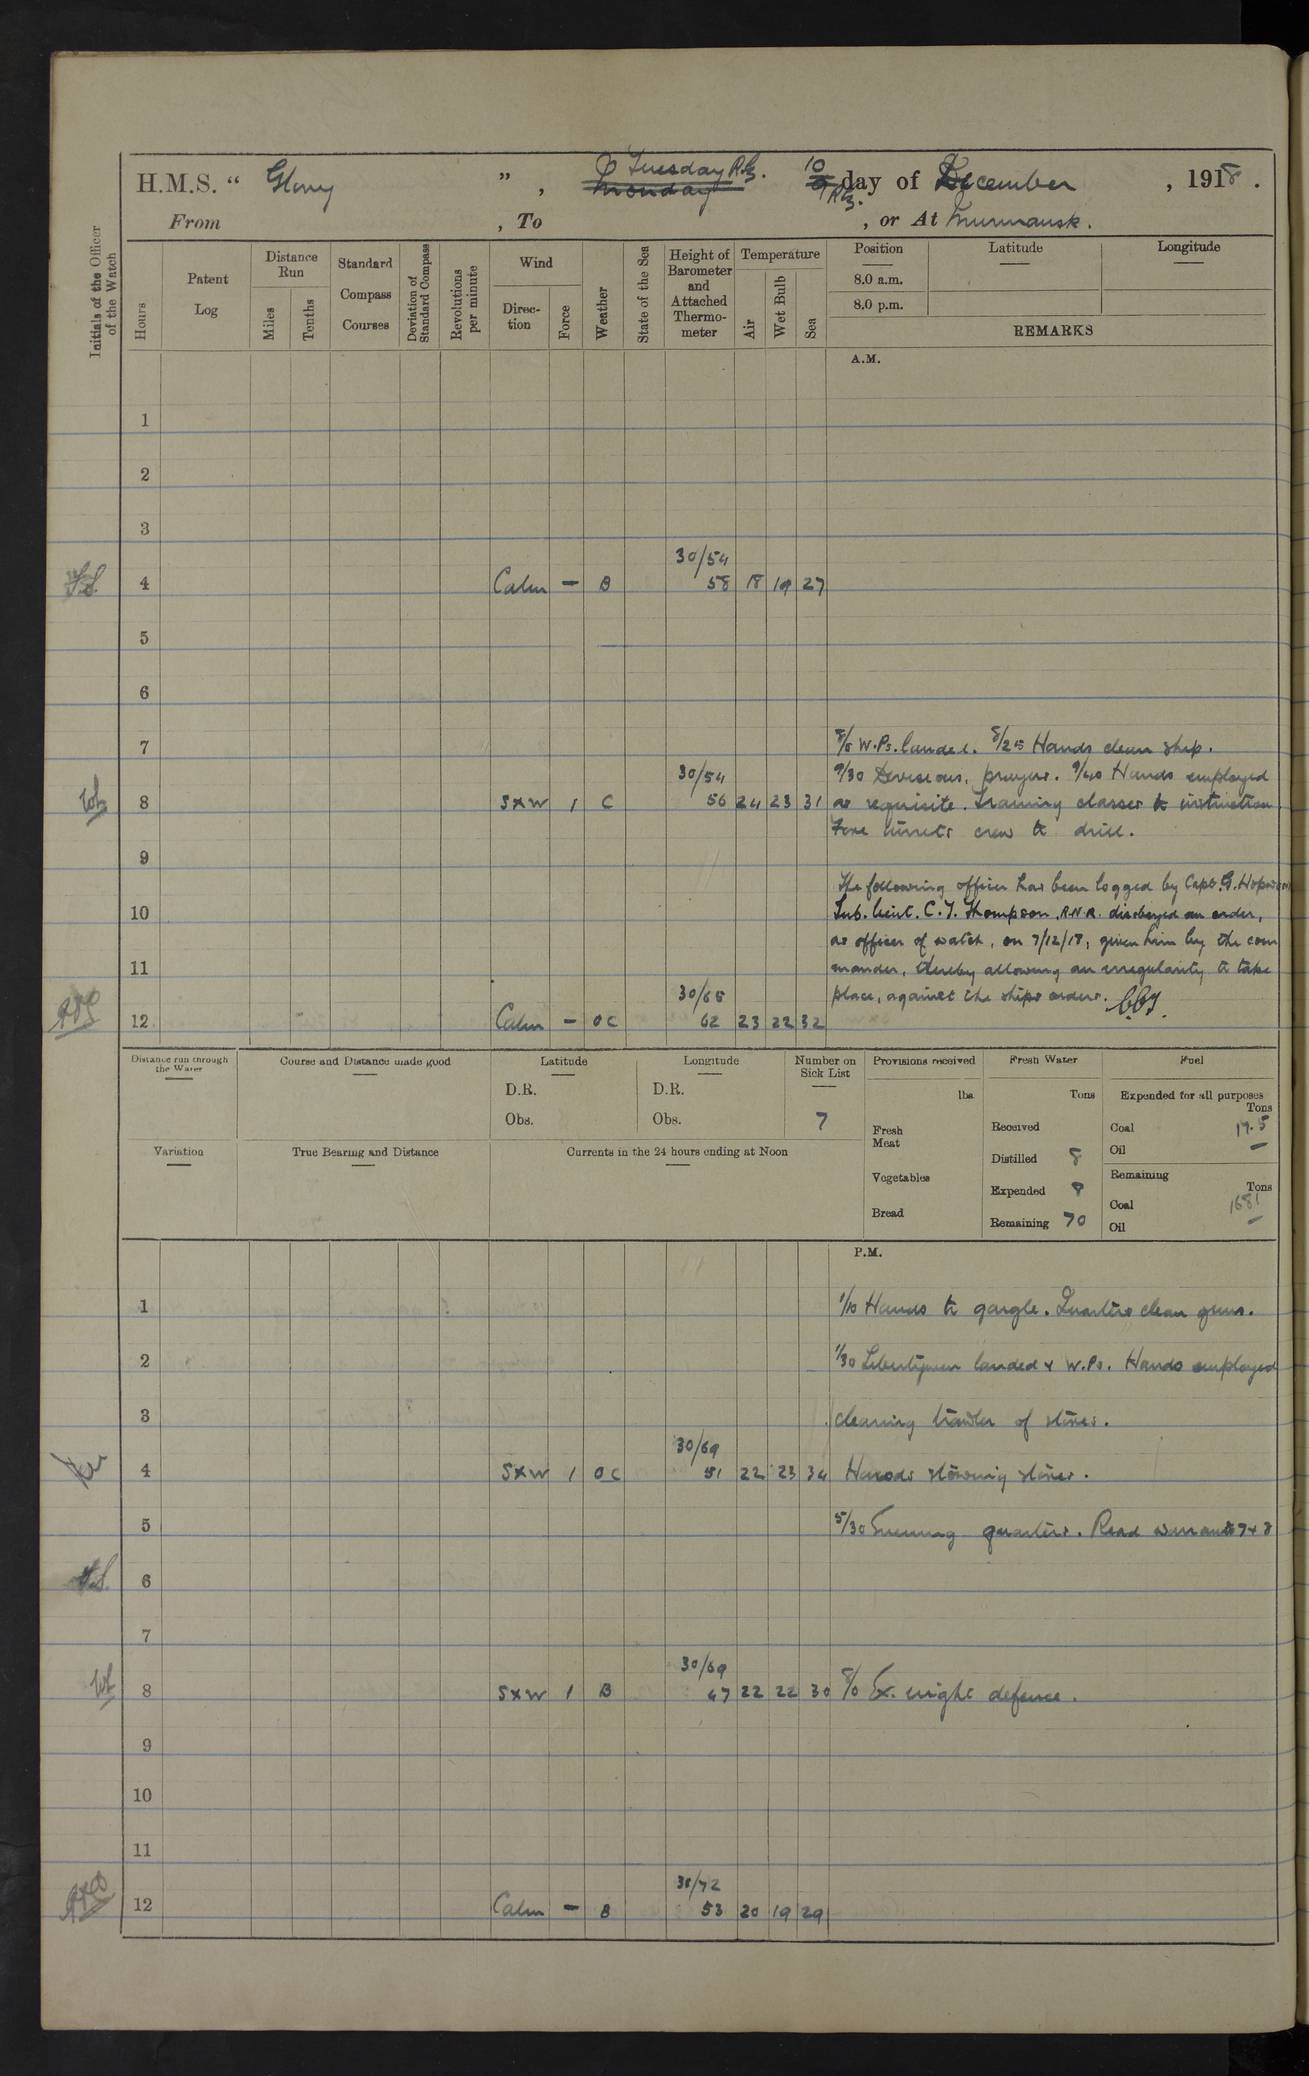 H.M.S. “ Glory ”, Tuesday R.G. 10 day of December, 1918.
Monday 9 R.G.
From , To , or At Murmansk.
Initials of the Officer of the Watch
Hours
Patent Log
Distance Run
Miles
Tenths
Standard Compass Courses
Deviation of Standard Compass
Revolutions per minute
Wind
Direction
Force
Weather
State of the Sea
Height of Barometer and Attached Thermometer
Temperature
Air
Wet Bulb
Sea
Position Latitude Longitude
8.0 a.m.
8.0 p.m.
REMARKS
A.M.
1
2
3
30/54
4 Calm — B 58 18 19 27
5
6
7 8/5 W.Ps. landed. 8/25 Hands clean ship.
30/54 9/30 Divisions, prayers. 9/40 Hands employed
8 SxW 1 C 56 24 23 31 as requisite. Training classes to instruction
Fore turrets crew to drill.
9
The following officer has been logged by Capt. G. Hopwood
10 Sub. Lieut. C. J. Thompson, R.N.R. disobeyed an order,
as officer of watch, on 7/12/18, given him by the com
11 mander, thereby allowing an irregularity to take
30/65 place, against the ships orders.
12 Calm — OC 62 23 22 32
Distance run through the Water
Course and Distance made good
Latitude
D.R.
Obs.
Longitude
D.R.
Obs.
Number on Sick List
7
Variation
True Bearing and Distance
Currents in the 24 hours ending at Noon
Provisions received
lbs
Fresh Meat
Vegetables
Bread
Fresh Water
Tons
Received
Distilled 8
Expended 8
Remaining 70
Fuel
Expended for all purposes
Tons
Coal 17.5
Oil —
Remaining
Tons
Coal 1681
Oil —
P.M.
1 1/10 Hands to gargle. Quarters clean guns.
2 1/30 Libertymen landed & W.Ps. Hands employed
3 clearing trawler of stores.
30/69
4 SxW 1 OC 51 22 23 34 Hands stowing stores.
5 5/30 Evening quarters. Read warrants 7 & 8
6
7
30/69
8 SxW 1 B 47 22 22 30 8/0 Ex. night defence.
9
10
11
30/72
12 Calm — B 53 20 19 29